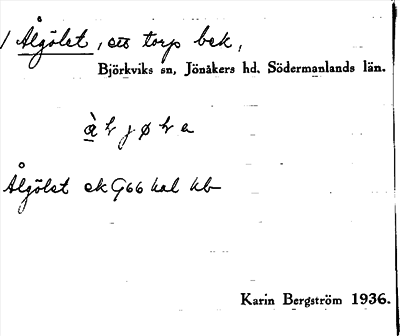 Ålgölet, ett torp bek,
Björkviks sn, Jönåkers hd. Södermanlands län.
Ålgölet ek G66 kal kb
Karin Bergström 1936.